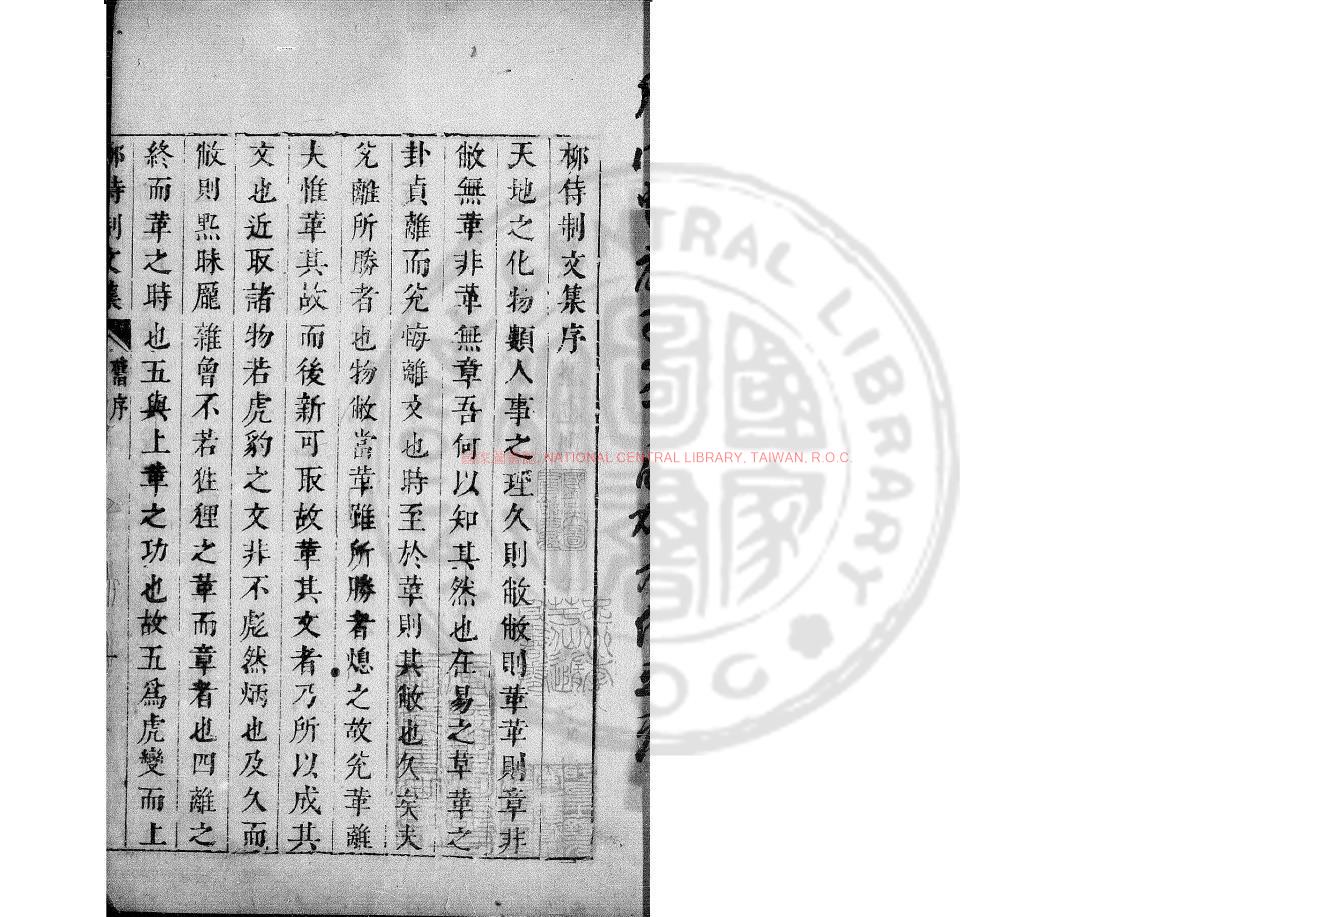 柳待制文集序
天地之化物類人事之理久則敝敝則革革則章非
敝無革非革無章吾何以知其然也在易之革革之
卦貞離而兊悔離文也時至於革則其敝也久矣夫
兊離所勝者也物敝當革雖所勝者熄之故兊革離
大惟革其故而後新可取故革其文者乃所以成其
文也近取諸物若虎豹之文非不彪然炳也及久而
敝則㸃昧龎雜曾不若狌狸之革而章者也四離之
終而革之時也五與上革之功也故五爲虎變而上
柳待制文集 舊序
NATIONAL CENTRAL LIBRARY, TAIWAN, R.O.C.